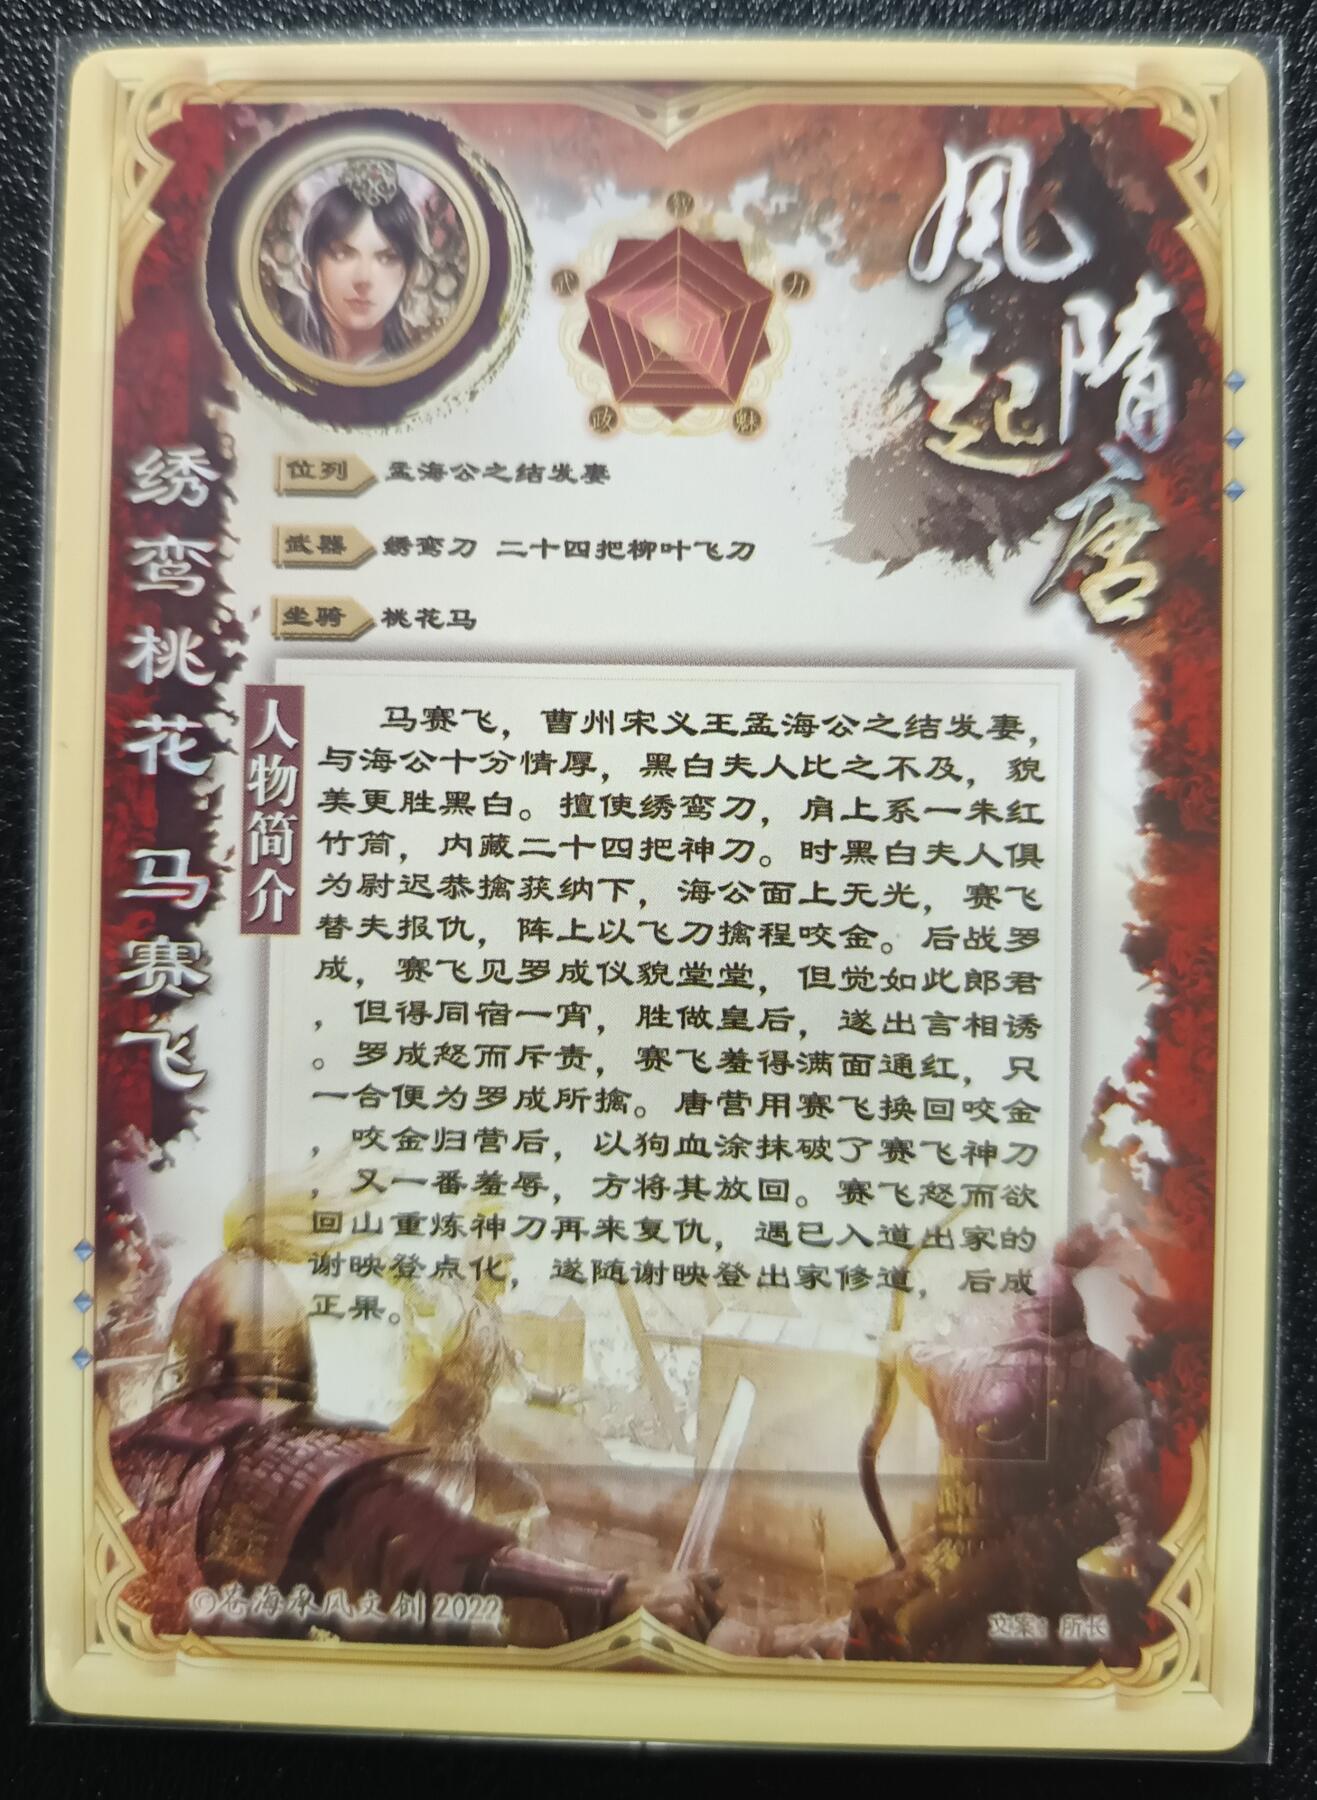 風起
隋唐
智
武
力
政
魅
绣鸾桃花 马赛飞
位列 孟海公之结发妻
武器 绣鸾刀 二十四把柳叶飞刀
坐骑 桃花马
人物简介
马赛飞，曹州宋义王孟海公之结发妻，
与海公十分情厚，黑白夫人比之不及，貌
美更胜黑白。擅使绣鸾刀，肩上系一朱红
竹筒，内藏二十四把神刀。时黑白夫人俱
为尉迟恭擒获纳下，海公面上无光，赛飞
替夫报仇，阵上以飞刀擒程咬金。后战罗
成，赛飞见罗成仪貌堂堂，但觉如此郎君
，但得同宿一宵，胜做皇后，遂出言相诱
。罗成怒而斥责，赛飞羞得满面通红，只
一合便为罗成所擒。唐营用赛飞换回咬金
，咬金归营后，以狗血涂抹破了赛飞神刀
，又一番羞辱，方将其放回。赛飞怒而欲
回山重炼神刀再来复仇，遇已入道出家的
谢映登点化，遂随谢映登出家修道，后成
正果。
©苍海承风文创 2022
文案：所长